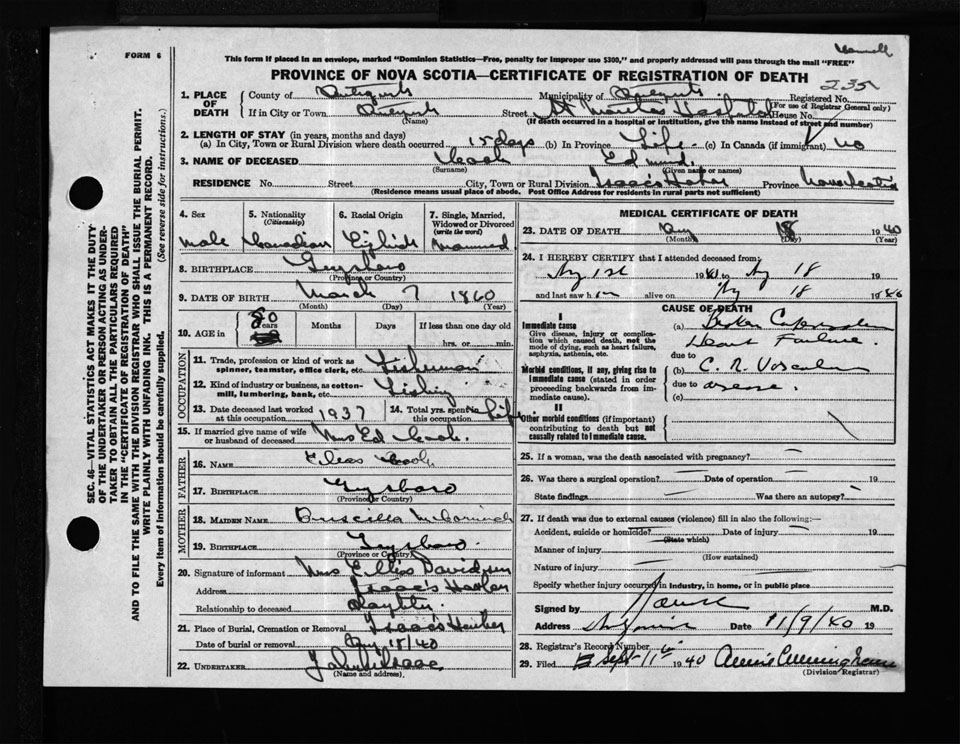 FORM 6
This form if placed in an envelope, marked "Dominion Statistics—Free, penalty for improper use $300," and properly addressed will pass through the mail "FREE"
PROVINCE OF NOVA SCOTIA—CERTIFICATE OF REGISTRATION OF DEATH
235
1. PLACE OF DEATH
County of Antigonish Municipality of Antigonish Registered No.
(For use of Registrar General only)
If in City or Town Street St Marthas Hospital House No.
(Name) (If death occurred in a hospital or institution, give the name instead of street and number)
2. LENGTH OF STAY (in years, months and days)
(a) In City, Town or Rural Division where death occurred 15 days (b) In Province Life (c) In Canada (if immigrant) no
3. NAME OF DECEASED Cook Edmund
(Surname) (Given name or names)
RESIDENCE No. Street City, Town or Rural Division Isaac's Harbor Province Nova Scotia
(Residence means usual place of abode. Post Office Address for residents in rural parts not sufficient)
SEC. 46—VITAL STATISTICS ACT MAKES IT THE DUTY
OF THE UNDERTAKER OR PERSON ACTING AS UNDER-
TAKER TO OBTAIN ALL THE PARTICULARS REQUIRED
IN THE "CERTIFICATE OF REGISTRATION OF DEATH"
AND TO FILE THE SAME WITH THE DIVISION REGISTRAR WHO SHALL ISSUE THE BURIAL PERMIT.
WRITE PLAINLY WITH UNFADING INK. THIS IS A PERMANENT RECORD.
Every item of information should be carefully supplied. (See reverse side for instructions.)
4. Sex 5. Nationality (Citizenship) 6. Racial Origin 7. Single, Married, Widowed or Divorced (write the word)
Male Canadian English Married
8. BIRTHPLACE Guysboro
(Province or Country)
9. DATE OF BIRTH March 7 1860
(Month) (Day) (Year)
10. AGE in 80 Years Months Days If less than one day old
hrs. or min.
OCCUPATION
11. Trade, profession or kind of work as spinner, teamster, office clerk, etc. Fisherman
12. Kind of industry or business, as cotton-mill, lumbering, bank, etc. Fishing
13. Date deceased last worked at this occupation 1937 14. Total yrs. spent in this occupation Life
15. If married give name of wife or husband of deceased Mrs Ed Cook
FATHER
16. NAME Cook
17. BIRTHPLACE Guysboro
(Province or Country)
MOTHER
18. MAIDEN NAME Priscilla
19. BIRTHPLACE Guysboro
(Province or Country)
20. Signature of informant Mrs Ellis Davidson
Address Isaac's Harbor
Relationship to deceased daughter
21. Place of Burial, Cremation or Removal Isaac's Harbor
Date of burial or removal /40
22. UNDERTAKER
(Name and address)
MEDICAL CERTIFICATE OF DEATH
23. DATE OF DEATH Aug 18 1940
(Month) (Day) (Year)
24. I HEREBY CERTIFY that I attended deceased from:
Aug 1st 1940 to Aug 18 19
and last saw him alive on Aug 18 1940
CAUSE OF DEATH
I
Immediate cause
Give disease, injury or complication which caused death, not the mode of dying, such as heart failure, asphyxia, asthenia, etc.
(a) Broken
Heart Failure.
due to
Morbid conditions, if any, giving rise to immediate cause (stated in order proceeding backwards from immediate cause).
(b) C. R. Vascular
due to disease.
(c)
II
Other morbid conditions (if important) contributing to death but not causally related to immediate cause.
25. If a woman, was the death associated with pregnancy?
26. Was there a surgical operation? Date of operation 19
State findings Was there an autopsy?
27. If death was due to external causes (violence) fill in also the following:—
Accident, suicide or homicide? Date of injury 19
(State which)
Manner of injury
(How sustained)
Nature of injury
Specify whether injury occurred in industry, in home, or in public place
Signed by M.D.
Address Antigonish Date 11/9/40 19
28. Registrar's Record Number
29. Filed Sept 11 1940 Annie Cunningham
(Division Registrar)